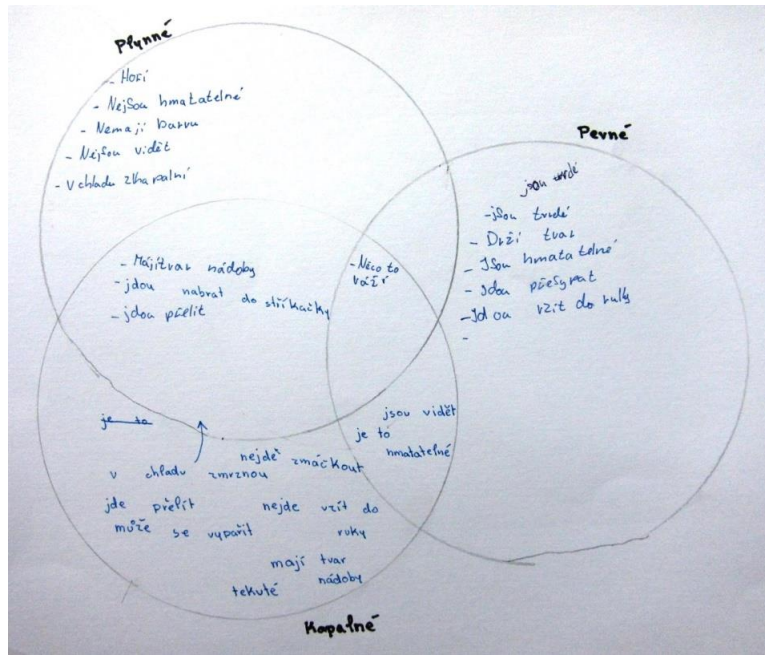 Plynné
- Hoří
- Nejsou hmatatelné
- Nemají barvu
- Nejsou vidět
- V chladu zkapalní
Pevné
jsou tvrdé
- jsou tvrdé
- Drží tvar
- Jsou hmatatelné
- Jdou přesypat
- Jdou vzít do ruky
-
- Májítvar nádoby
- jdou nabrat do stříkačky
- jdou přelít
- Něco to
váží
jsou vidět
je to
hmatatelné
je to
nejde zmáčknout
v chladu zmrznou
jde přelít nejde vzít do
může se vypařit ruky
mají tvar
nádoby
tekuté
Kapalné